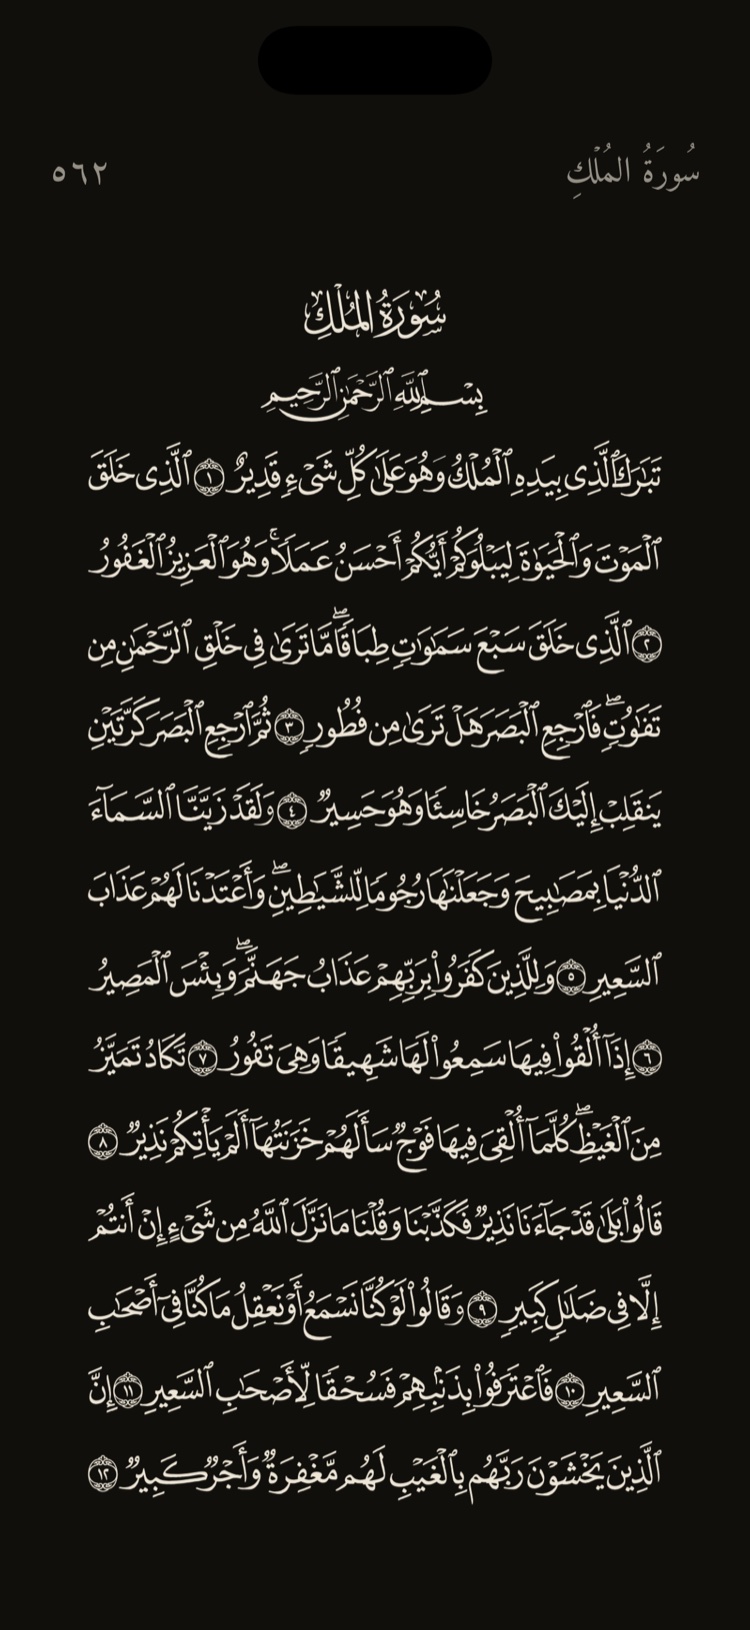 سُورَةُ المُلْكِ
٥٦٢
سُورَةُ المُلْكِ
بِسْمِ ٱللَّهِ ٱلرَّحْمَٰنِ ٱلرَّحِيمِ
تَبَٰرَكَ ٱلَّذِى بِيَدِهِ ٱلْمُلْكُ وَهُوَ عَلَىٰ كُلِّ شَىْءٍ قَدِيرٌ ١ ٱلَّذِى خَلَقَ
ٱلْمَوْتَ وَٱلْحَيَوٰةَ لِيَبْلُوَكُمْ أَيُّكُمْ أَحْسَنُ عَمَلًا ۚ وَهُوَ ٱلْعَزِيزُ ٱلْغَفُورُ
٢ ٱلَّذِى خَلَقَ سَبْعَ سَمَٰوَٰتٍ طِبَاقًا ۖ مَّا تَرَىٰ فِى خَلْقِ ٱلرَّحْمَٰنِ مِن
تَفَٰوُتٍ ۖ فَٱرْجِعِ ٱلْبَصَرَ هَلْ تَرَىٰ مِن فُطُورٍ ٣ ثُمَّ ٱرْجِعِ ٱلْبَصَرَ كَرَّتَيْنِ
يَنقَلِبْ إِلَيْكَ ٱلْبَصَرُ خَاسِئًا وَهُوَ حَسِيرٌ ٤ وَلَقَدْ زَيَّنَّا ٱلسَّمَآءَ
ٱلدُّنْيَا بِمَصَٰبِيحَ وَجَعَلْنَٰهَا رُجُومًا لِّلشَّيَٰطِينِ ۖ وَأَعْتَدْنَا لَهُمْ عَذَابَ
ٱلسَّعِيرِ ٥ وَلِلَّذِينَ كَفَرُوا۟ بِرَبِّهِمْ عَذَابُ جَهَنَّمَ ۖ وَبِئْسَ ٱلْمَصِيرُ
٦ إِذَآ أُلْقُوا۟ فِيهَا سَمِعُوا۟ لَهَا شَهِيقًا وَهِىَ تَفُورُ ٧ تَكَادُ تَمَيَّزُ
مِنَ ٱلْغَيْظِ ۖ كُلَّمَآ أُلْقِىَ فِيهَا فَوْجٌ سَأَلَهُمْ خَزَنَتُهَآ أَلَمْ يَأْتِكُمْ نَذِيرٌ ٨
قَالُوا۟ بَلَىٰ قَدْ جَآءَنَا نَذِيرٌ فَكَذَّبْنَا وَقُلْنَا مَا نَزَّلَ ٱللَّهُ مِن شَىْءٍ إِنْ أَنتُمْ
إِلَّا فِى ضَلَٰلٍ كَبِيرٍ ٩ وَقَالُوا۟ لَوْ كُنَّا نَسْمَعُ أَوْ نَعْقِلُ مَا كُنَّا فِىٓ أَصْحَٰبِ
ٱلسَّعِيرِ ١٠ فَٱعْتَرَفُوا۟ بِذَنۢبِهِمْ فَسُحْقًا لِّأَصْحَٰبِ ٱلسَّعِيرِ ١١ إِنَّ
ٱلَّذِينَ يَخْشَوْنَ رَبَّهُم بِٱلْغَيْبِ لَهُم مَّغْفِرَةٌ وَأَجْرٌ كَبِيرٌ ١٢